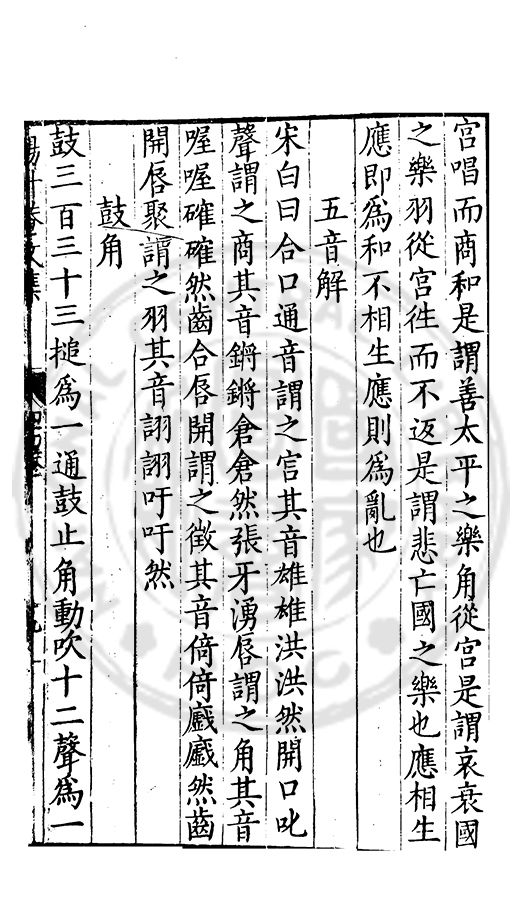 宮唱而商和是謂善太平之樂角從宮是謂哀衰國
之樂羽從宮徃而不返是謂悲亡國之樂也應相生
應即爲和不相生應則爲亂也
五音解
宋白曰合口通音謂之宮其音雄雄洪洪然開口叱
聲謂之商其音鏘鏘倉倉然張牙湧唇謂之角其音
喔喔確確然齒合唇開謂之徵其音倚倚戲戲然齒
開唇聚謂之羽其音詡詡吁吁然
鼓角
鼓三百三十三搥爲一通鼓止角動吹十二聲爲一